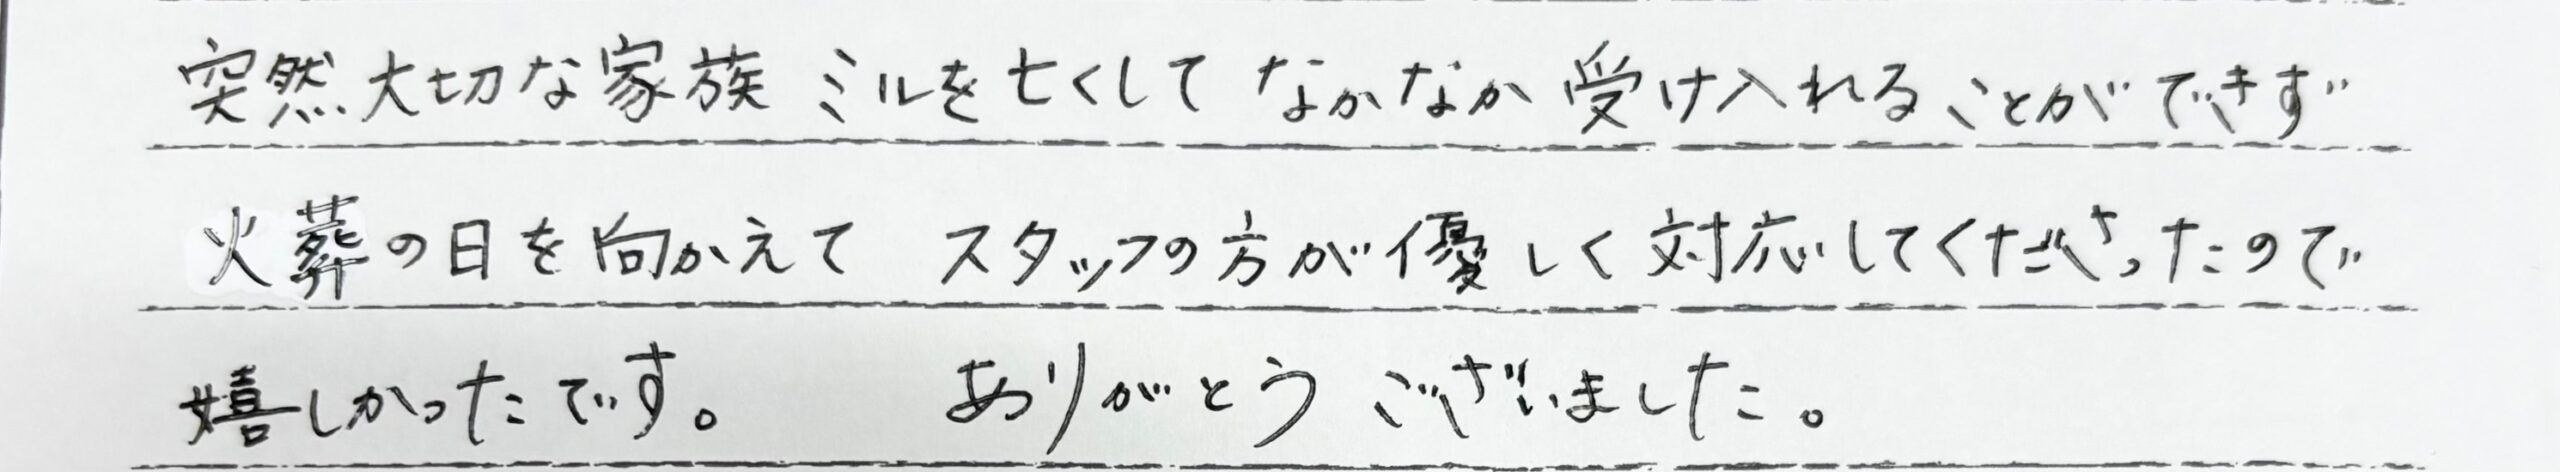 突然大切な家族 ミルを亡くして なかなか受け入れることができず
火葬の日を向かえて スタッフの方が優しく対応してくださったので
嬉しかったです。 ありがとうございました。